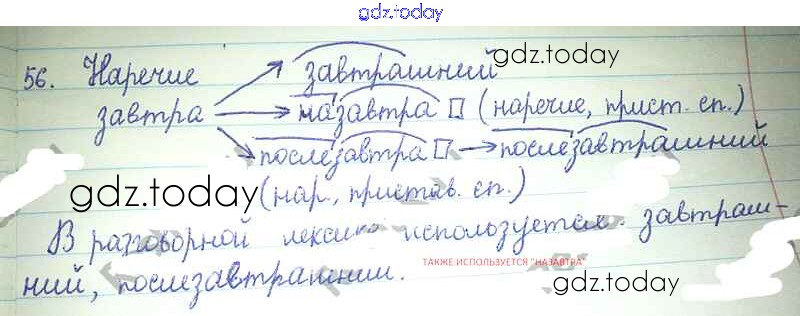 gdz.today
56. Наречие завтрашний gdz.today
завтра назавтра □ (наречие, прист. сп.)
послезавтра □ → послезавтрашний
gdz.today (нар., пристав. сп.)
В разговорной лексике используется завтраш-
ТАКЖЕ ИСПОЛЬЗУЕТСЯ "НАЗАВТРА"
ний, послезавтрашнии. gdz.today